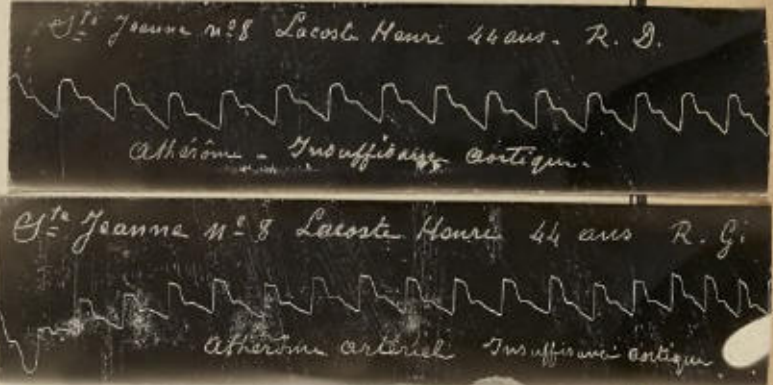 Ste Jeanne nº 8 Lacoste Henri 44 ans. R. D.
Athérôme - Insuffisance aortique.
Ste Jeanne nº 8 Lacoste Henri 44 ans R. G.
Athérôme artériel Insuffisance aortique